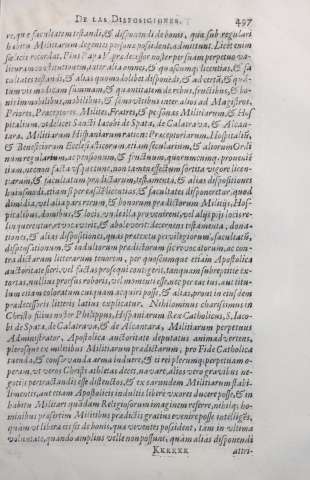 DE LAS DISPOSICIONES. 497
re, que facultatem testandi, & disponendi de bonis, quæ sub regulari
habitu Militarum degentes possunt, possident, admittunt. Licet enim
fœlicis recordat. Pius Papa V prædecessor noster per suam perpetuo va-
lituram constitutionem, inter alia omnes, & quascumq; licentias, & fa
cultates testandi, & alias quomodolibet disponēdi, & ad certā, & quā-
tumvis modicam summam, & quantitatem de rebus, fructibus, & bo-
nis immobilibus, mobilibus, & semoventibus inter alios ad Magistros,
Priores, Præceptores, Milites, Fratres, & personas Militiarum, & Hos
pitalium, videlicet Sancti Iacobi de Spata, de Calatrava, & Alcan-
tara, Militiarum Hispaniarum ratione Præceptoriarum, Hospitaliū,
& Beneficiorum Ecclesiasticorum etiam sæcularium, & aliorum Ordi
num regularium, ac pensionum, & fructuum, quorumcumq; provenie
tium, ac emon facta vsque tunc, non tam effectum sortita vigore licen-
tiarum, & facultatum prædictarum, testamenta, & alias dispositiones
huiusmodi, etiam spe ea sit licentias, & facultates disponeretur, quod
dimidia, vel alia pars rerum, & bonorum prædictorum Militijs, Hos-
pitalibus, domibus, & locis, vnde illa provenirent, vel alijs pijs locis re-
linqueretur, revocavit, & abolevit: decernens testamenta, dona-
tiones, & alias dispositiones, quas prætextu privilegiorum, facultatū,
dispensationum, & indultorum prædictorum sic revocatorum, ac con-
tra dictarum litterarum tenorem, per quoscumque etiam Apostolica
auctoritate fieri, vel factas pro quæ contigerit, tanquam subreptitie ex-
tortas, nullius prorsus roboris, vel momenti esse, nec per eas ius, aut titu-
lum etiam coloratum cuiquam acquiri posse, & alias, prout in eisdem
prædecessoris litteris latius explicatur. Nihilominus charissimus in
Christo filius noster Philippus, Hispaniarum Rex Catholicus, S. Iaco-
bi de Spata, de Calatrava, & de Alcantara, Militiarum perpetuus
Administrator, Apostolica auctoritate deputatus animadvertens,
plerosque ex militibus Militiarum prædictarum, pro Fide Catholica
tuenda, & conservanda arma induere, & ei rei plerumq; perpetuam o-
peram, vt veros Christi athletas decet, navare, alias vero gravibus ne-
gotijs pertractandis esse distentos, & ex earundem Militiarum stabi-
limentis, aut etiam Apostolicis indultis libere vxores ducere posse, & in
habitu Militari quādam Religiosorum imaginem referre, nihilq; ho-
minibus præsertim Militibus prædictis gratius evenire posse intelligēs,
quàm vt liberatis sit de bonis, qua viventes possident, iam in vltima
voluntate, quando amplius velle non possunt, quàm alias disponendi
Kkkkkk attri-